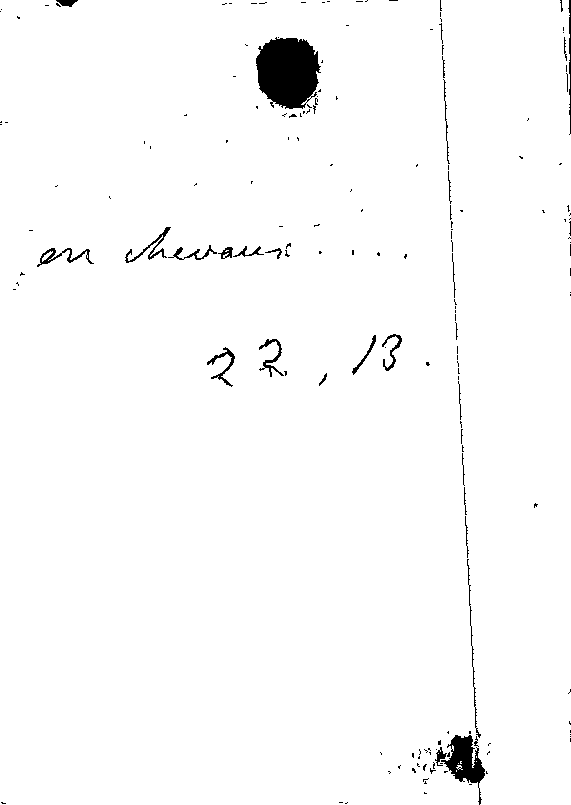 en chevaux ....
22, 13.